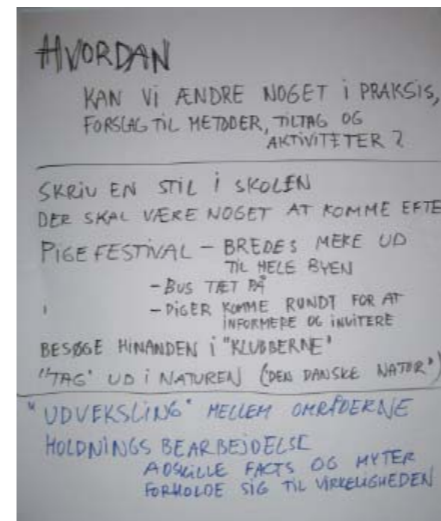 HVORDAN
KAN Vi ÆNDRE NOGET i PRAKSIS,
FORSLAG TIL METODER, TILTAG OG
AKTIVITETER ?
SKRiV EN STIL i SKOLEN
DER SKAL VÆRE NOGET AT KOMME EFTE
PIGEFESTIVAL – BREDES MERE UD
TIL HELE BYEN
- BUS TÆT PÅ
- PIGER KOMME RUNDT FOR AT
INFORMERE OG INVITERE
BESØGE HINANDEN i "KLUBBERNE"
"TAG" UD i NATUREN (DEN DANSKE NATUR")
"UDVEKSLING" MELLEM OMRÅDERNE
HOLDNINGS BEARBEJDELSE
ADSKILLE FACTS OG MYTER
FORHOLDE SIG TIL VIRKELIGHEDEN